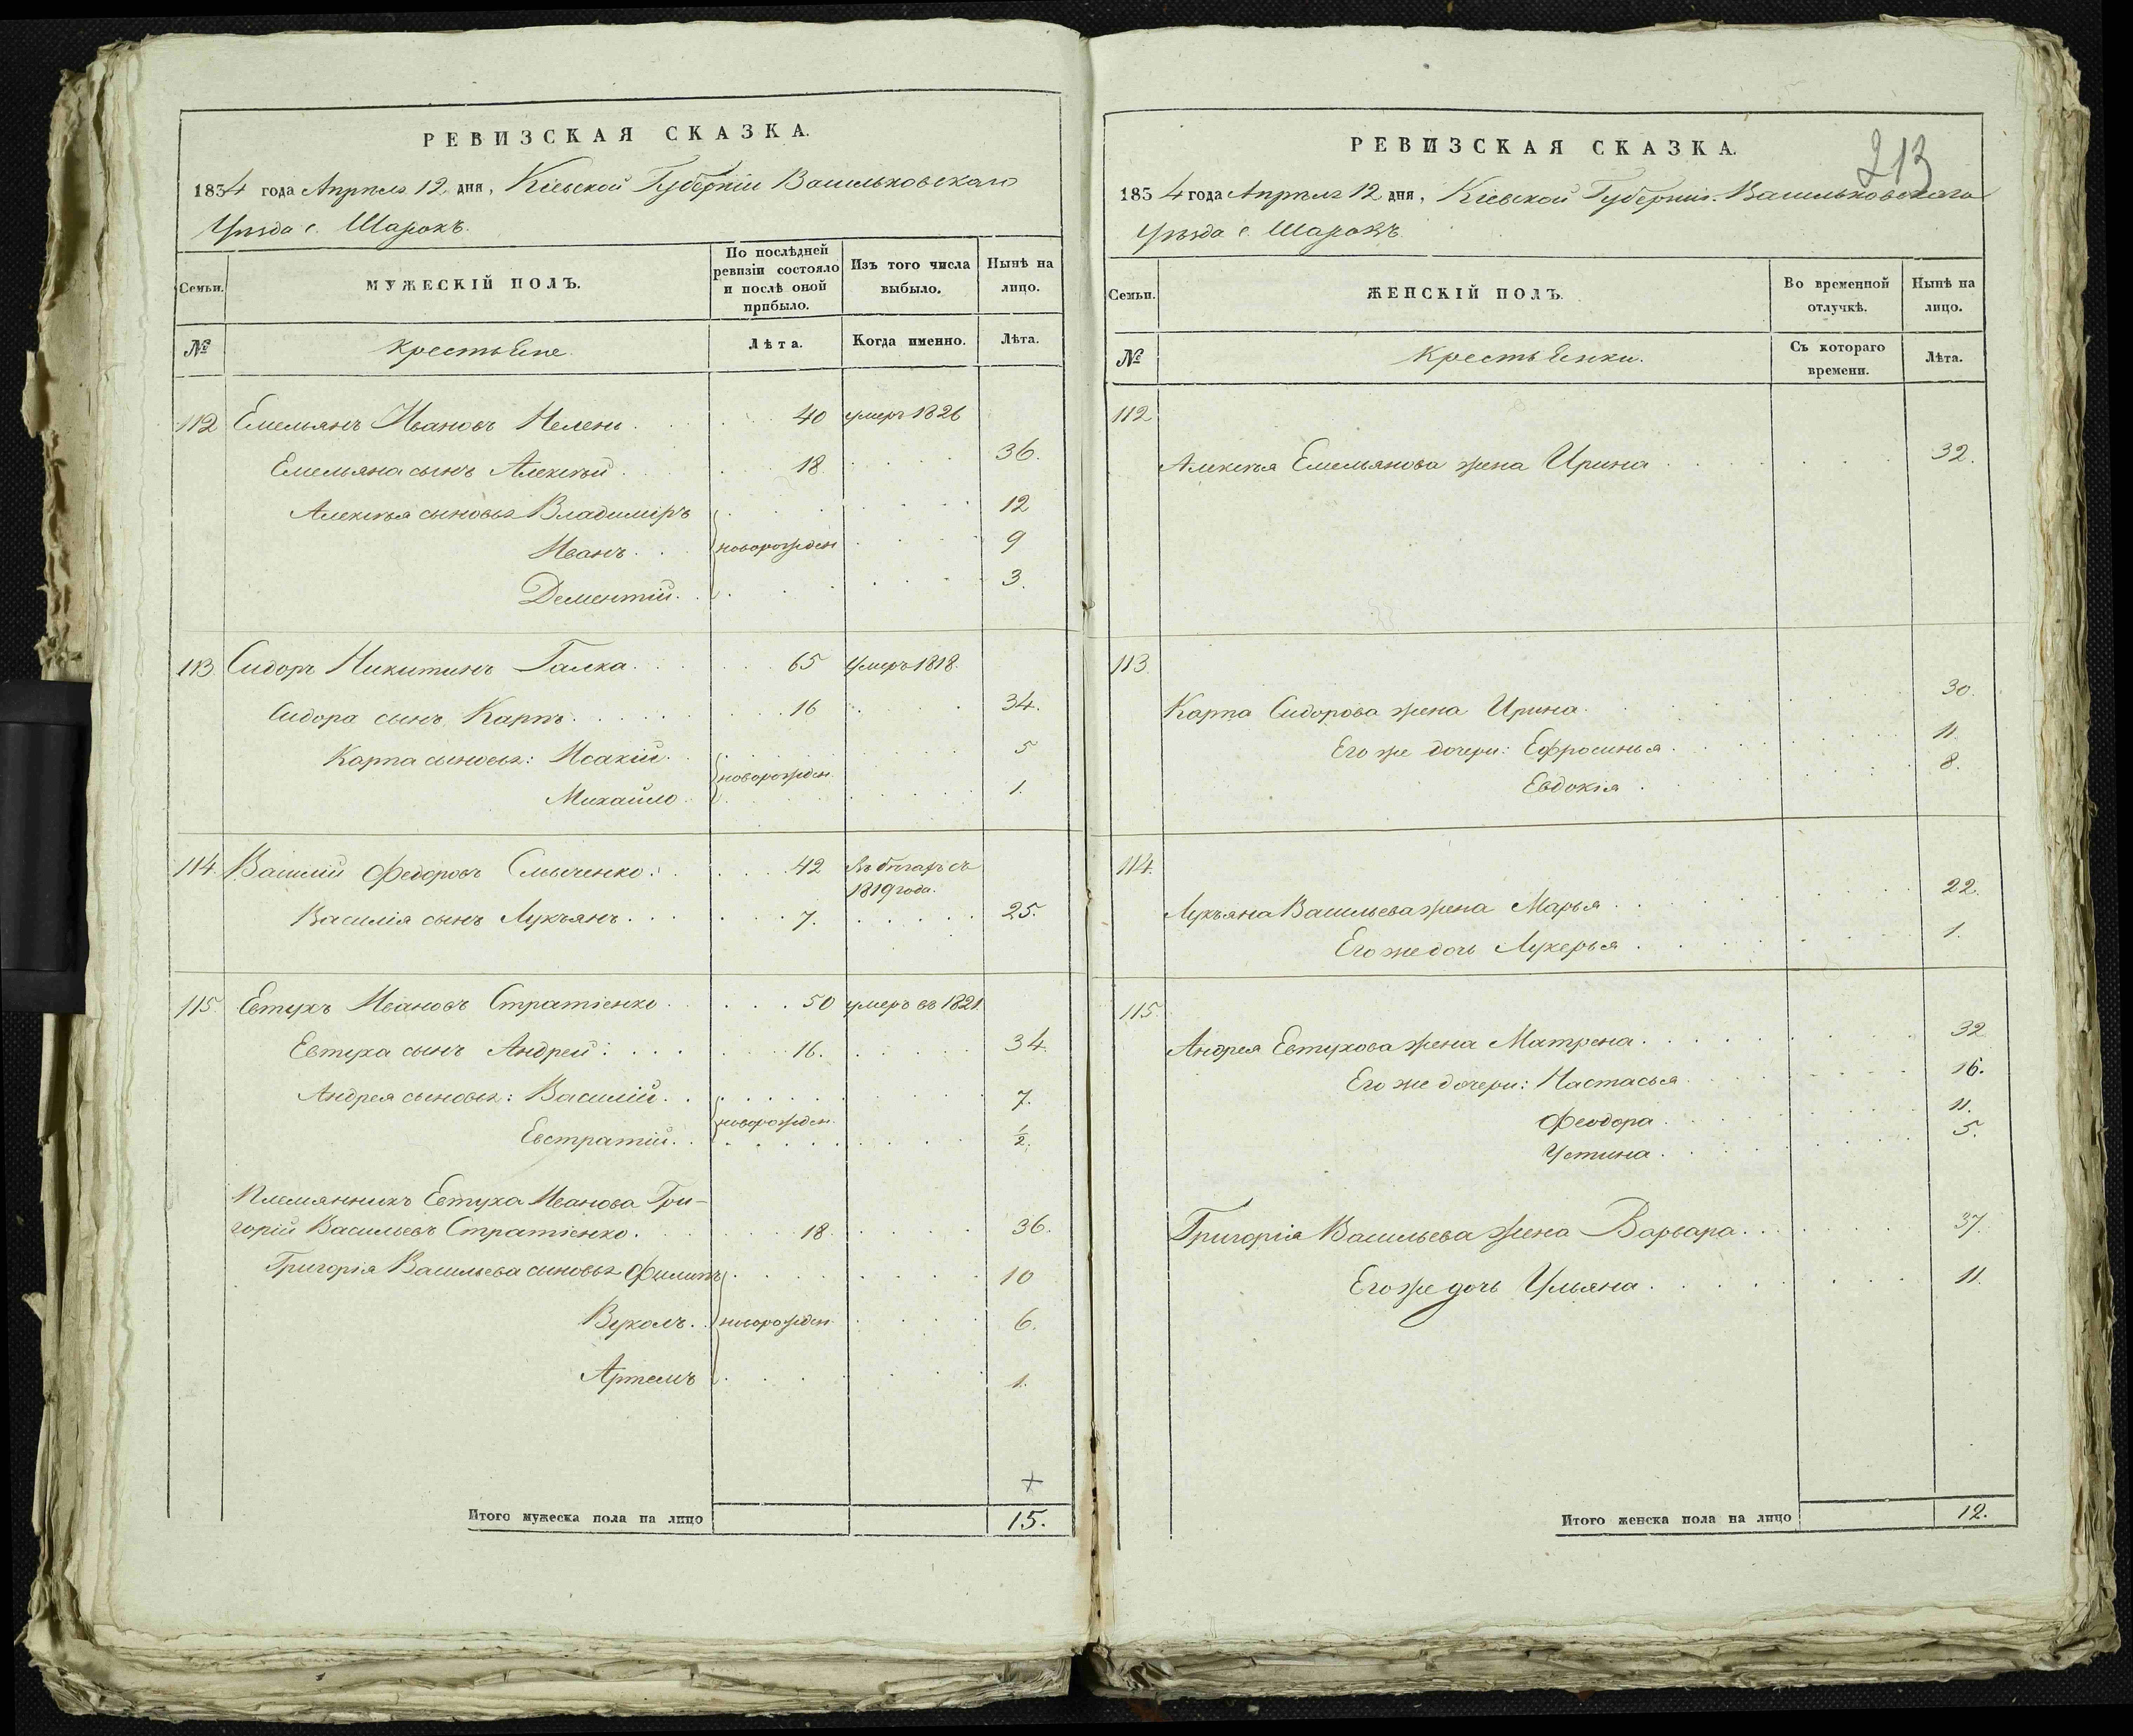 РЕВИЗСКАЯ СКАЗКА.
1834 года Апрѣля 12 дня, Кіевской Губерніи Васильковскаго
Уѣзда с. Шарокъ.
Семьи.
МУЖЕСКІЙ ПОЛЪ.
По послѣдней ревизіи состояло и послѣ оной прибыло.
Изъ того числа выбыло.
Нынѣ на лицо.
№
Крестьяне.
Лѣта.
Когда именно.
Лѣта.
112 Емельянъ Ивановъ 40 умеръ 1826
Емельяна сынъ Алексѣй 18 36.
Алексѣя сыновья Владиміръ 12
Иванъ новорожден 9
Дементій 3.
113 Сидоръ Никитинъ Галка 65 умеръ 1818.
Сидора сынъ Карпъ 16 34.
Карпа сыновья: Исакій 5
новорожден.
Михайло 1.
114. Василий Федоровъ 42 въ бѣгахъ съ
1819 года.
Василія сынъ Лукъянъ 7. 25.
115. Евтухъ Ивановъ Стратіенко 50 умеръ въ 1821
Евтуха сынъ Андрей: 16. 34.
Андрея сыновья: Василій 7.
новорожден.
Евстратій ½.
Племянникъ Евтуха Иванова Гри-
горій Васильевъ Стратіенко. 18. 36.
Григорія Васильева сыновья Филипъ 10
Вуколъ новорожден. 6.
Артемъ 1.
+
Итого мужеска пола на лицо 15.
213
РЕВИЗСКАЯ СКАЗКА.
1834 года Апрѣля 12 дня, Кіевской Губерніи Васильковскаго
Уѣзда с. Шарокъ
Семьи.
ЖЕНСКІЙ ПОЛЪ.
Во временной отлучкѣ.
Нынѣ на лицо.
№
Крестьянки.
Съ котораго времени.
Лѣта.
112
Алексѣя Емельянова жена Ирина 32.
113.
Карпа Сидорова жена Ирина 30.
Его же дочери: Ефросинья 11.
Евдокія 8.
114.
Лукъяна Васильева жена Марья 22.
Его же дочь Лукерья 1.
115.
Андрея Евтухова жена Матрена 32
Его же дочери: Настасья 16.
Феодора 11.
Устина 5.
Григорія Васильева жена Варвара 37.
Его же дочь Ульяна 11.
Итого женска пола на лицо 12.